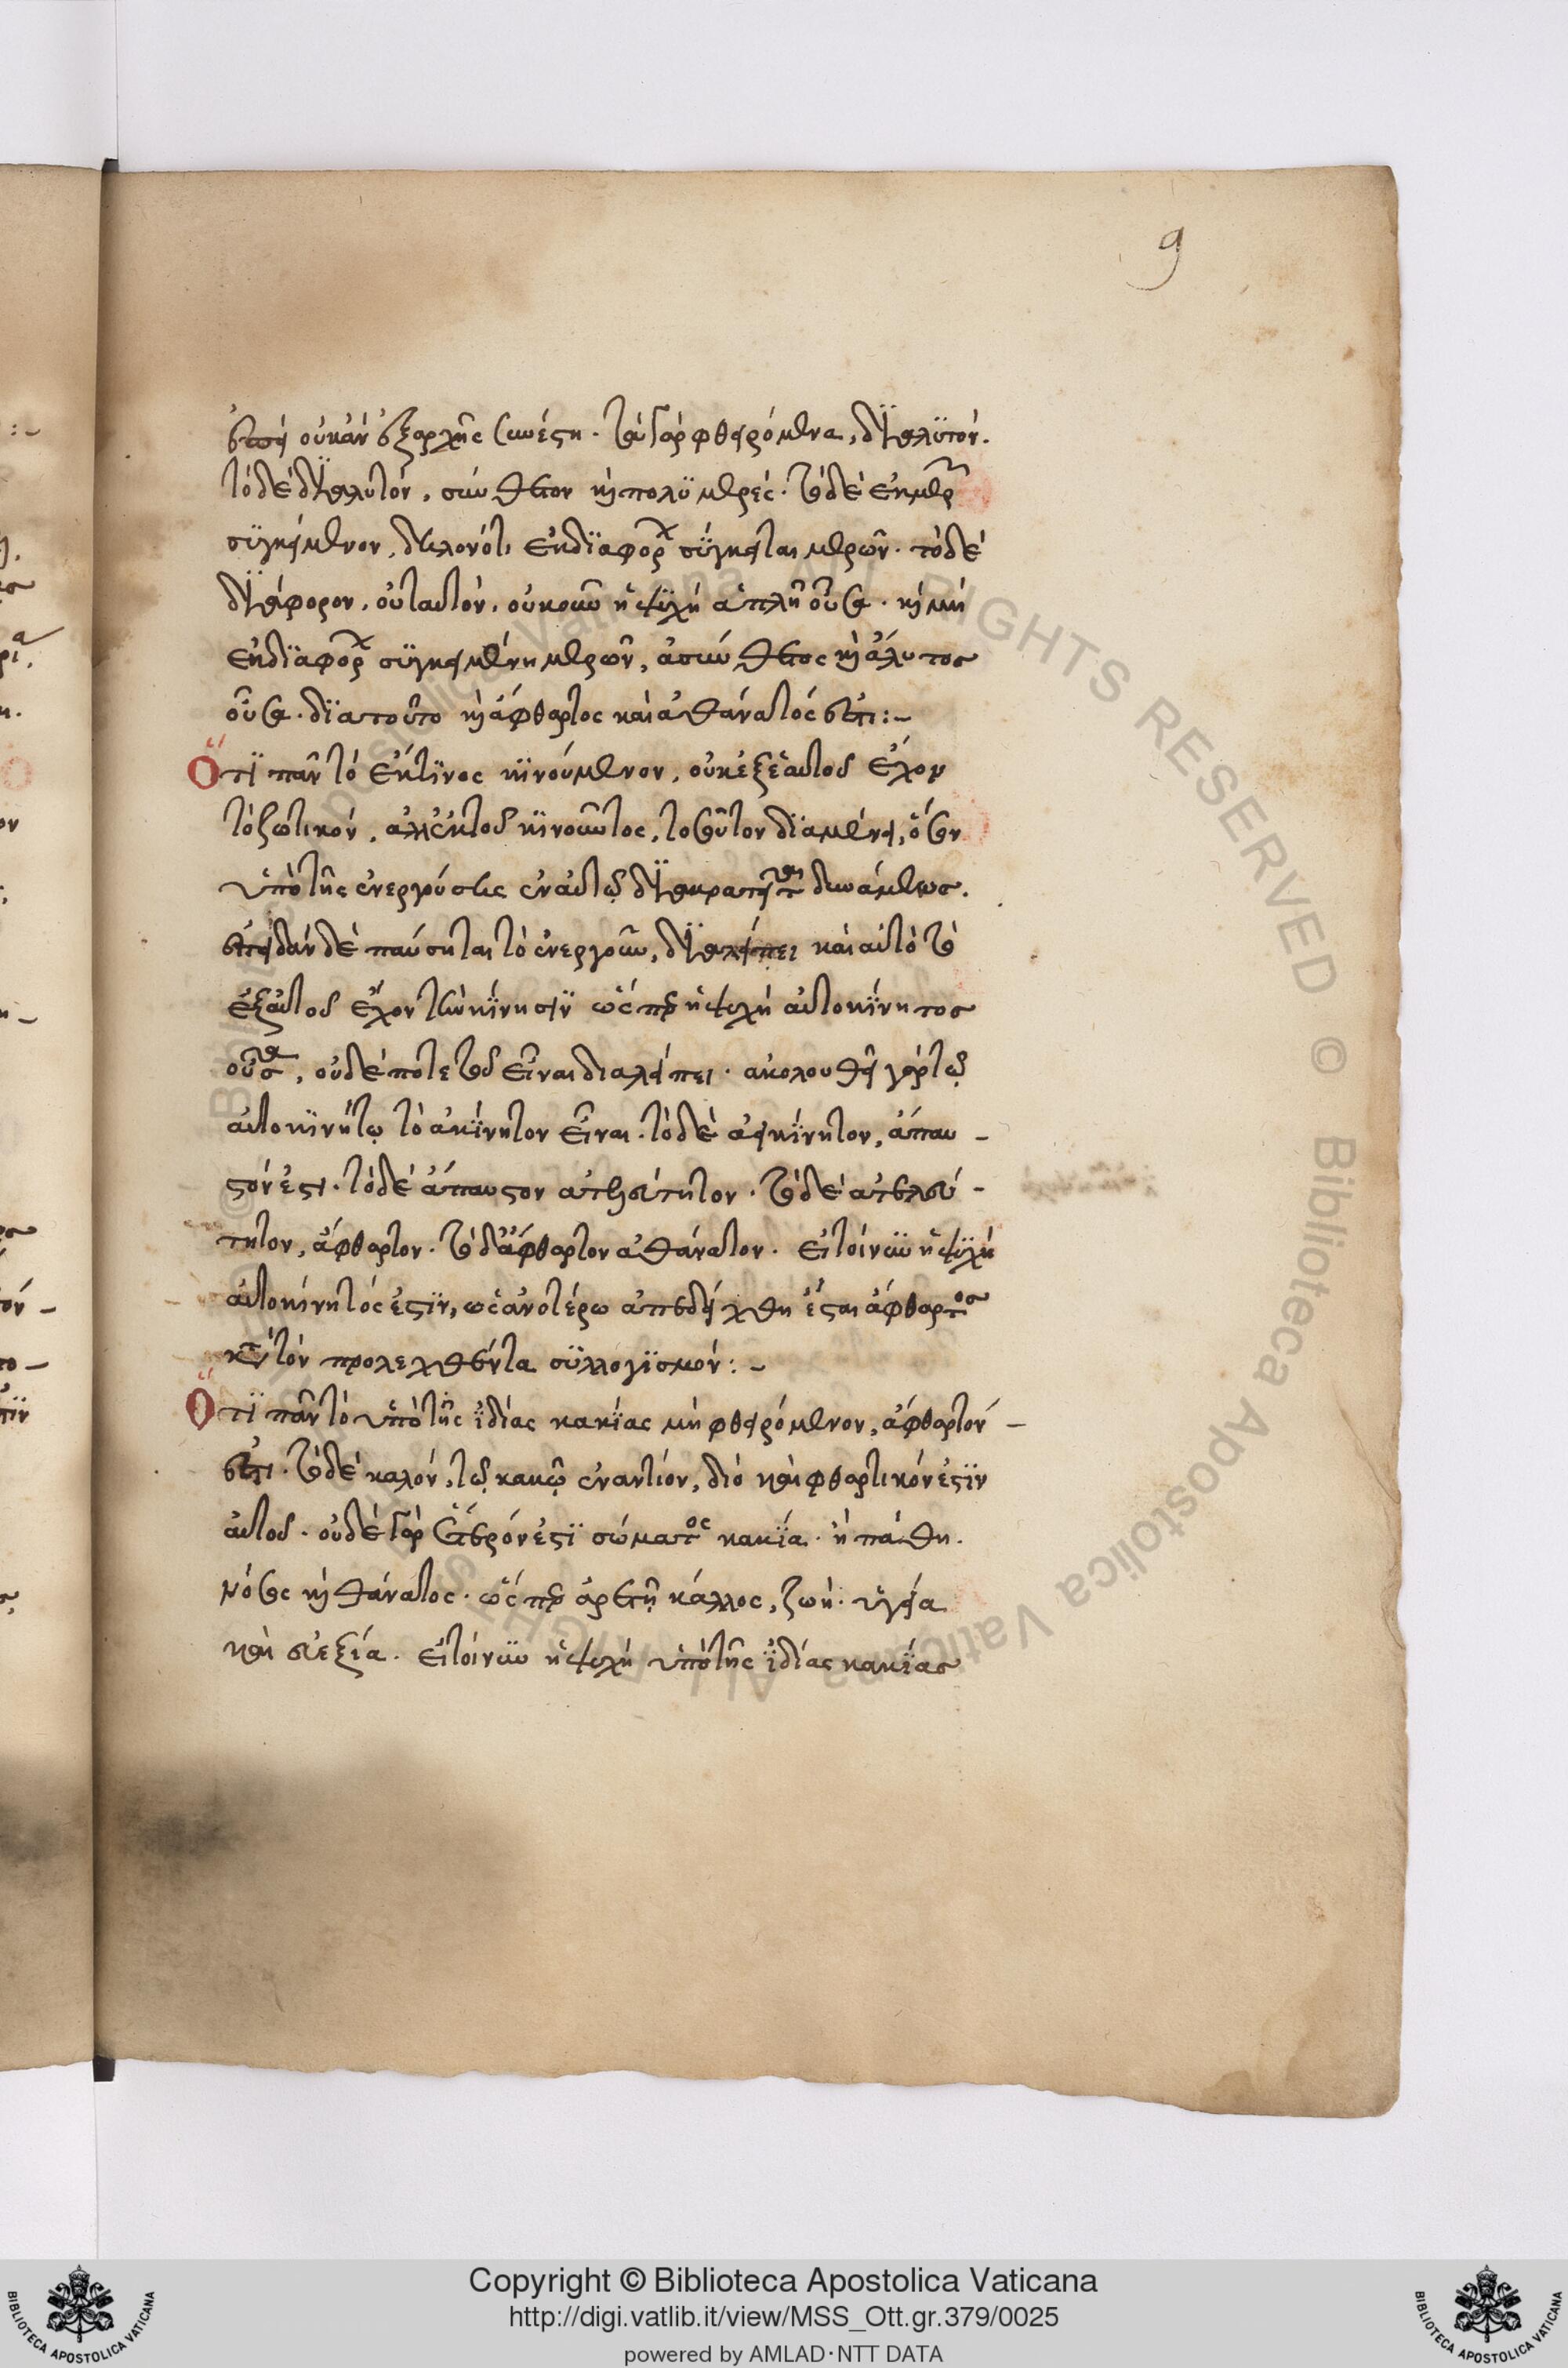 9
ἐπεὶ οὐκ ἂν ἐξαρχῆς συνέστη. τὰ γὰρ φθειρόμενα, διαλϋτόν.
τὸ δὲ διαλυτόν, σύνθετον κ πολϋμερές. τὸ δὲ ἐκ μερ
συγκείμενον, δηλονότι ἐκ διαφόρ σύγκειται μερῶν. τὸ δὲ
διάφορον, οὐ ταυτόν, οὐκοῦν ἡ ψυχὴ ἁπλῆ οὖσα. κ μὴ
ἐκ διαφόρ συγκειμένη μερῶν, ἀσύνθετος κ ἄλυτος
οὖσα. διατοῦτο κ ἄφθαρτος καὶ ἀθάνατός ἐστι:–
Ὅτι πᾶν τὸ ἔκ τινος κινούμενον, οὐκ ἐξ ἑαυτοῦ ἔχον
τὸ ζωτικόν, ἀλλ' ἐκ τοῦ κινοῦντος, τοσοῦτον διαμένει, ὅσον
ὑπὸ τῆς ἐνεργούσης ἐν αὐτῷ διακρατεῖται δυνάμεως.
ἐπειδὰν δὲ παύσηται τὸ ἐνεργοῦν, διαλείπει καὶ αὐτὸ τὸ
ἐξ αὐτοῦ ἔχον τὴν κίνησιν ὥσπερ ἡ ψυχὴ αὐτοκίνητος
οὖσα, οὐδέποτε τοῦ εἶναι διαλείπει. ἀκολουθεῖ γὰρ τῷ
αὐτοκινήτῳ τὸ ἀκίνητον εἶναι. τὸ δὲ ἀεικίνητον, ἄπαυ-
στόν ἐστι. τὸ δὲ ἄπαυστον ἀτελεύτητον. τὸ δὲ ἀτελεύ-
τητον, ἄφθαρτον. τὸ δ' ἄφθαρτον ἀθάνατον. εἰ τοίνυν ἡ ψυχὴ
αὐτοκίνητός ἐστιν, ὡς ἀνοτέρω ἀπεδείχθη ἔσται ἄφθαρτος
κατὰ τὸν προλεχθέντα συλλογισμόν:–
Ὅτι πᾶν τὸ ὑπὸ τῆς ἰδίας κακίας μὴ φθειρόμενον, ἄφθαρτόν–
ἐστι. τὸ δὲ καλόν, τῷ κακῷ ἐναντίον, διὸ καὶ φθαρτικόν ἐστιν
αὐτοῦ. οὐδὲ γὰρ ἕτερόν ἐστι σώματος κακία. ἢ πάθη.
νόσος κ θάνατος. ὥσπερ ἀρετὴ κάλλος, ζωή. ὑγεία
καὶ εὐεξία. εἰ τοίνυν ἡ ψυχὴ ὑπὸ τῆς ἰδίας κακίας
Copyright © Biblioteca Apostolica Vaticana
http://digi.vatlib.it/view/MSS_Ott.gr.379/0025
powered by AMLAD·NTT DATA